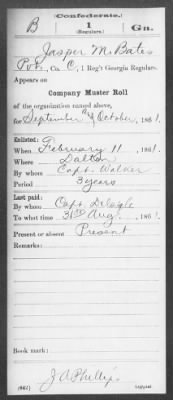 (Confederate.)
B 1 Gn.
(Regulars.)
Jasper M. Bates
Pvt., Co. C, 1 Reg't Georgia Regulars.
Appears on
Company Muster Roll
of the organization named above,
for September & October, 1861.
Enlisted:
When February 11, 1861.
Where Dalton
By whom Capt. Walker
Period 3 years
Last paid:
By whom Capt.
To what time 31st Aug., 1861.
Present or absent Present
Remarks:
Book mark:
J A Phillips
(642) Copyist.